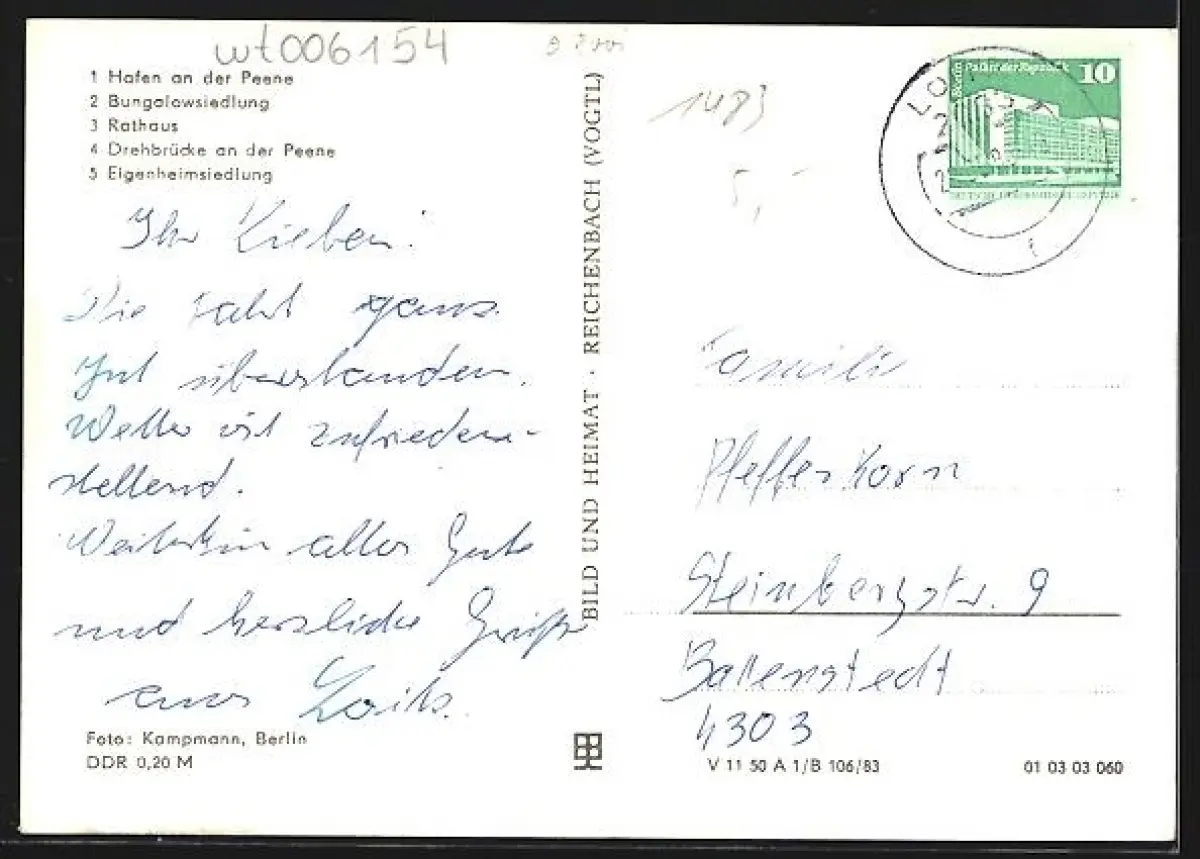 wt006154
1 Hafen an der Peene
2 Bungalowsiedlung
3 Rathaus
4 Drehbrücke an der Peene
5 Eigenheimsiedlung
Ihr Lieben!
Die Fahrt ganz
gut überstanden.
Wetter ist zufrieden-
stellend.
Weiterhin alles Gute
und herzliche Grüße
aus Loitz.
Foto: Kampmann, Berlin
DDR 0,20 M
BILD UND HEIMAT · REICHENBACH (VOGTL)
1483
5,-
Berlin Palast der Republik 10
DEUTSCHE DEMOKRATISCHE REPUBLIK
Familie
Pfefferkorn
Steinbergstr. 9
Ballenstedt
4303
V 11 50 A 1/B 106/83
01 03 03 060